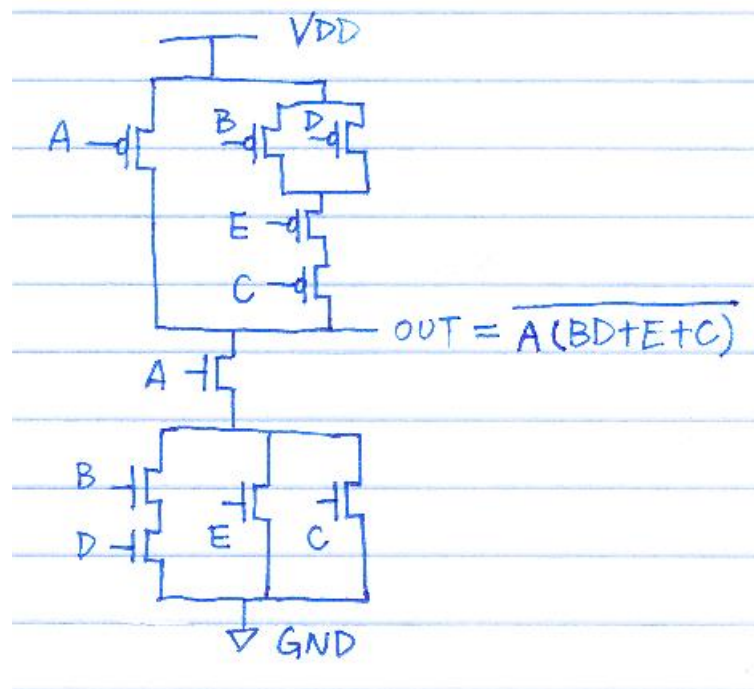 VDD
A
B
D
E
C
OUT = \overline{A(BD+E+C)}
A
B
D
E
C
GND